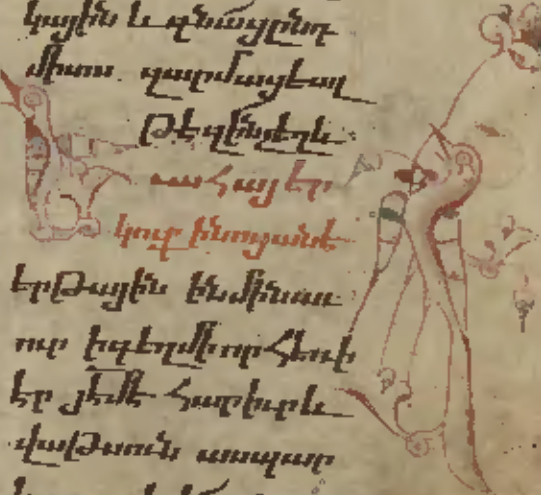 կային և գնայընդ
միտս զարմացեալ
թէ զինչ եղև։
Եւ ահայ եր
կուք ի նոցանէ
երթային ինմին աւ
ուր ի գեղ մի որ հեռի
էր յէմէ հարիւր և
վաթսուն ասպար